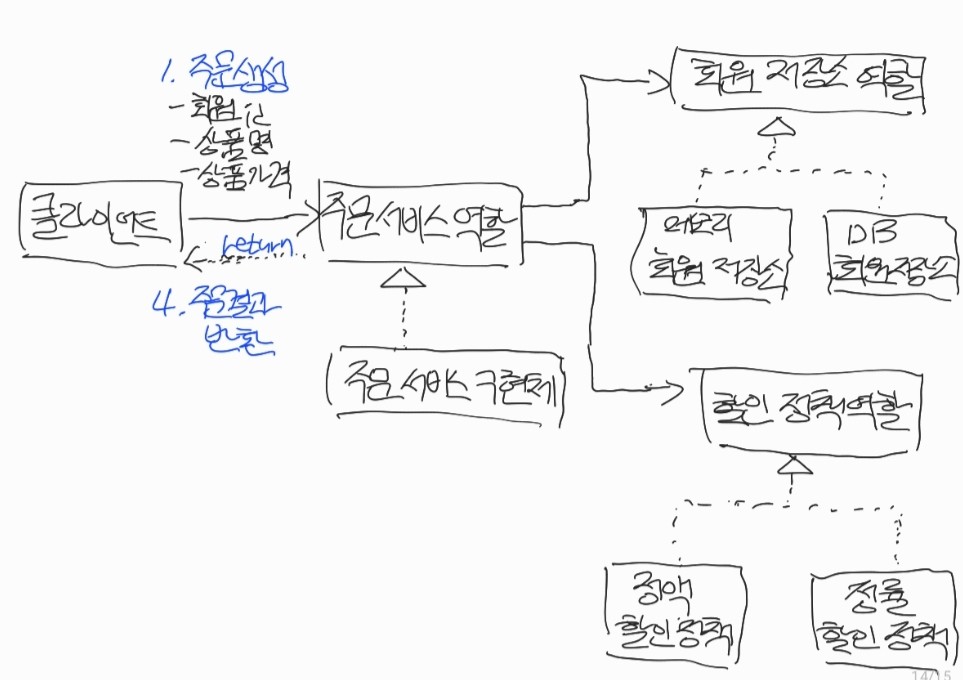 1. 주문생성
- 회원 id
- 상품명
- 상품가격
클라이언트
return
4. 주문결과
반환
주문서비스 역할
주문 서비스 구현체
회원 저장소 역할
메모리
회원 저장소
DB
회원저장소
할인 정책역할
정액
할인정책
정률
할인 정책
14/15